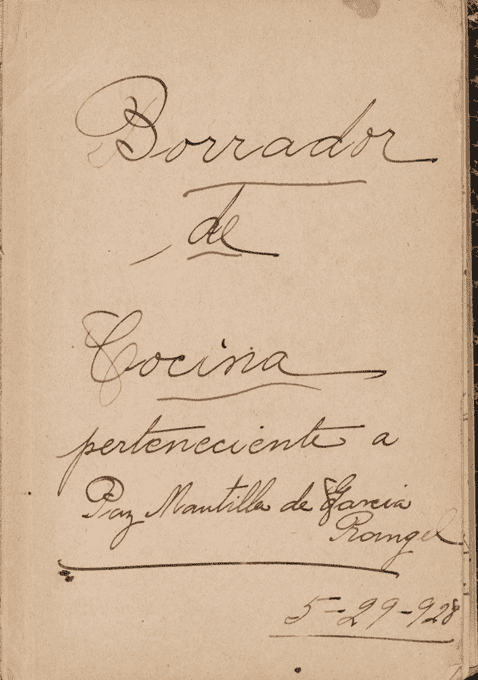 Borrador
de
Cocina
perteneciente a
Paz Mantilla de Garcia
Rangel
5-29-928